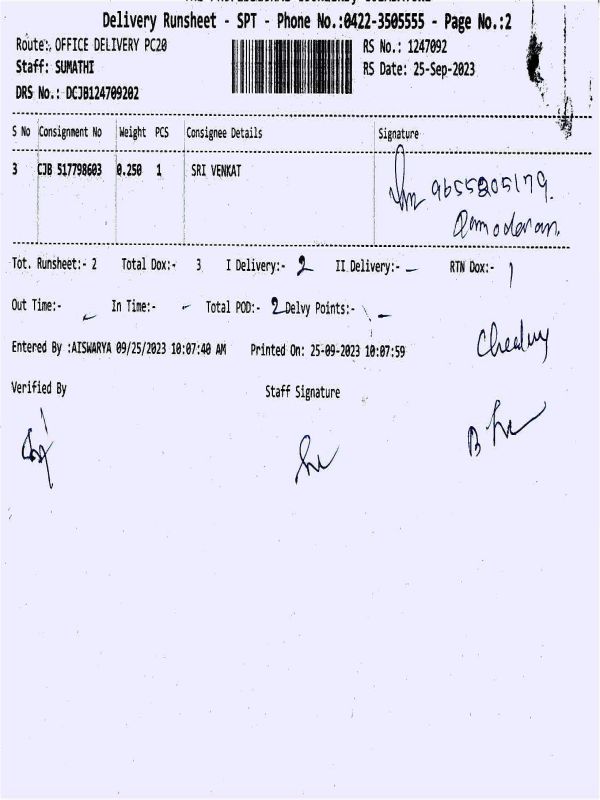 Delivery Runsheet - SPT - Phone No.:0422-3505555 - Page No.:2
Route:. OFFICE DELIVERY PC20 RS No.: 1247092
Staff: SUMATHI RS Date: 25-Sep-2023
DRS No.: DCJB124709202
S No Consignment No Weight PCS Consignee Details Signature
3 CJB 517798603 0.250 1 SRI VENKAT 9655205179.
Damodaran.
Tot. Runsheet:- 2 Total Dox:- 3 I Delivery:- 2 II Delivery:- - RTN Dox:- 1
Out Time:- - In Time:- - Total POD:- 2 Delvy Points:- \ -
Entered By :AISWARYA 09/25/2023 10:07:40 AM Printed On: 25-09-2023 10:07:59
Verified By Staff Signature